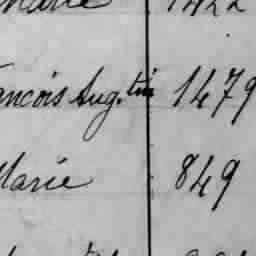 Marie 1422
ancois Aug.tin 1479
Marie 849